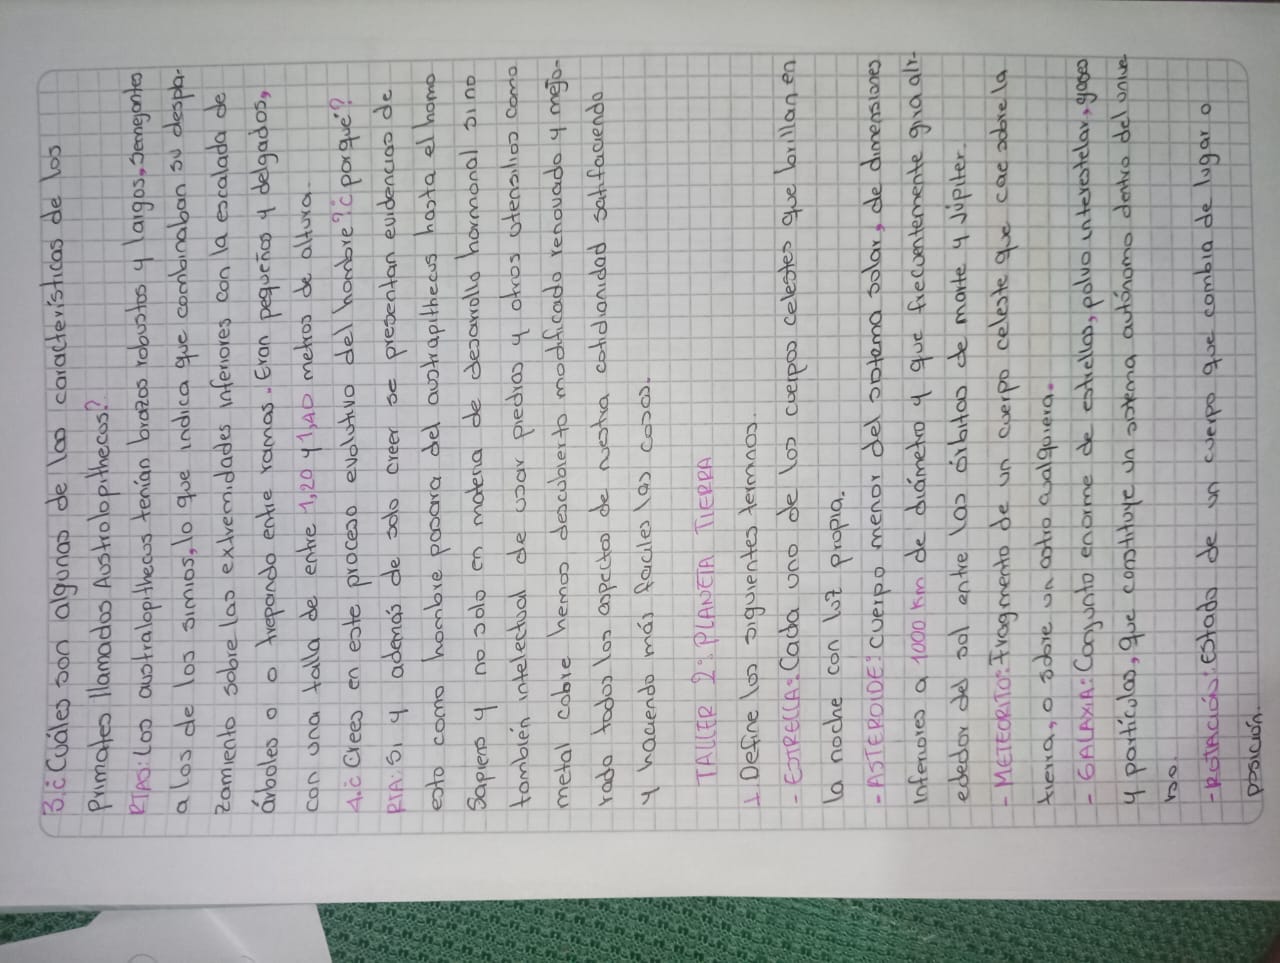 3.¿Cuáles son algunas de las características de los
Primates llamados Australopithecos?
RTAS: Los australopithecus tenían brazos robustos y largos, semejantes
a los de los simios, lo que indica que combinaban su despla-
zamiento sobre las extremidades inferiores con la escalada de
árboles o trepando entre ramas. Eran pequeños y delgados,
con una talla de entre 1,20 y 1,40 metros de altura.
4.¿Crees en este proceso evolutivo del hombre? ¿porqué?
RTA: Si y además de solo creer se presentan evidencias de
esto como hombre pasara del austrapithecus hasta el homo
Sapiens y no solo en materia de desarrollo hormonal sino
también intelectual de usar piedras y otros utensilios como
metal cobre hemos descubierto modificado renovado y mejo-
rado todos los aspectos de nuestra cotidianidad satifaciendo
y haciendo más faciles las cosas.
TALLER 2: PLANETA TIERRA
1. Define los siguientes terminos.
- ESTRELLA: Cada uno de los cuerpos celestes que brillan en
la noche con luz propia.
- ASTEROIDE: cuerpo menor del sistema solar, de dimensiones
inferiores a 1000 Km de diámetro y que frecuentemente gira alr-
ededor del sol entre las órbitas de marte y Júpiter.
- METEORITO: Fragmento de un cuerpo celeste que cae sobre la
tierra, o sobre un astro cualquiera.
- GALAXIA: Conjunto enorme de estrellas, polvo interestelar, gases
y partículas, que constituye un sistema autónomo dentro del unive
rso.
- ROTACIÓN: Estado de un cuerpo que cambia de lugar o
posición.